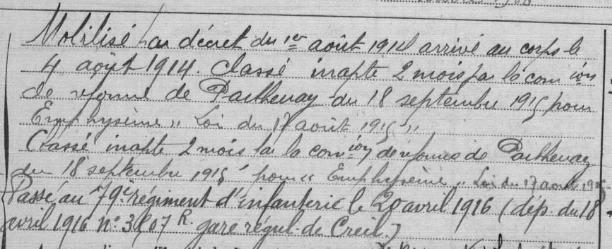 Mobilisé par décret du 1er août 1914 arrivé au corps le
4 août 1914. Classé inapte 2 mois par la com ion
de réforme de Parthenay du 18 septembre 1915 pour
Emphysème " Loi du 17 août 1915 "
Classé inapte 2 mois par la com ion de réforme de Parthenay
du 18 septembre 1915 pour " Emphysème " Loi du 17 août 1915
Passé au 79e régiment d'infanterie le 20 avril 1916 (dép. du 18
avril 1916 n° 3107 R. gare régul. de Creil.)